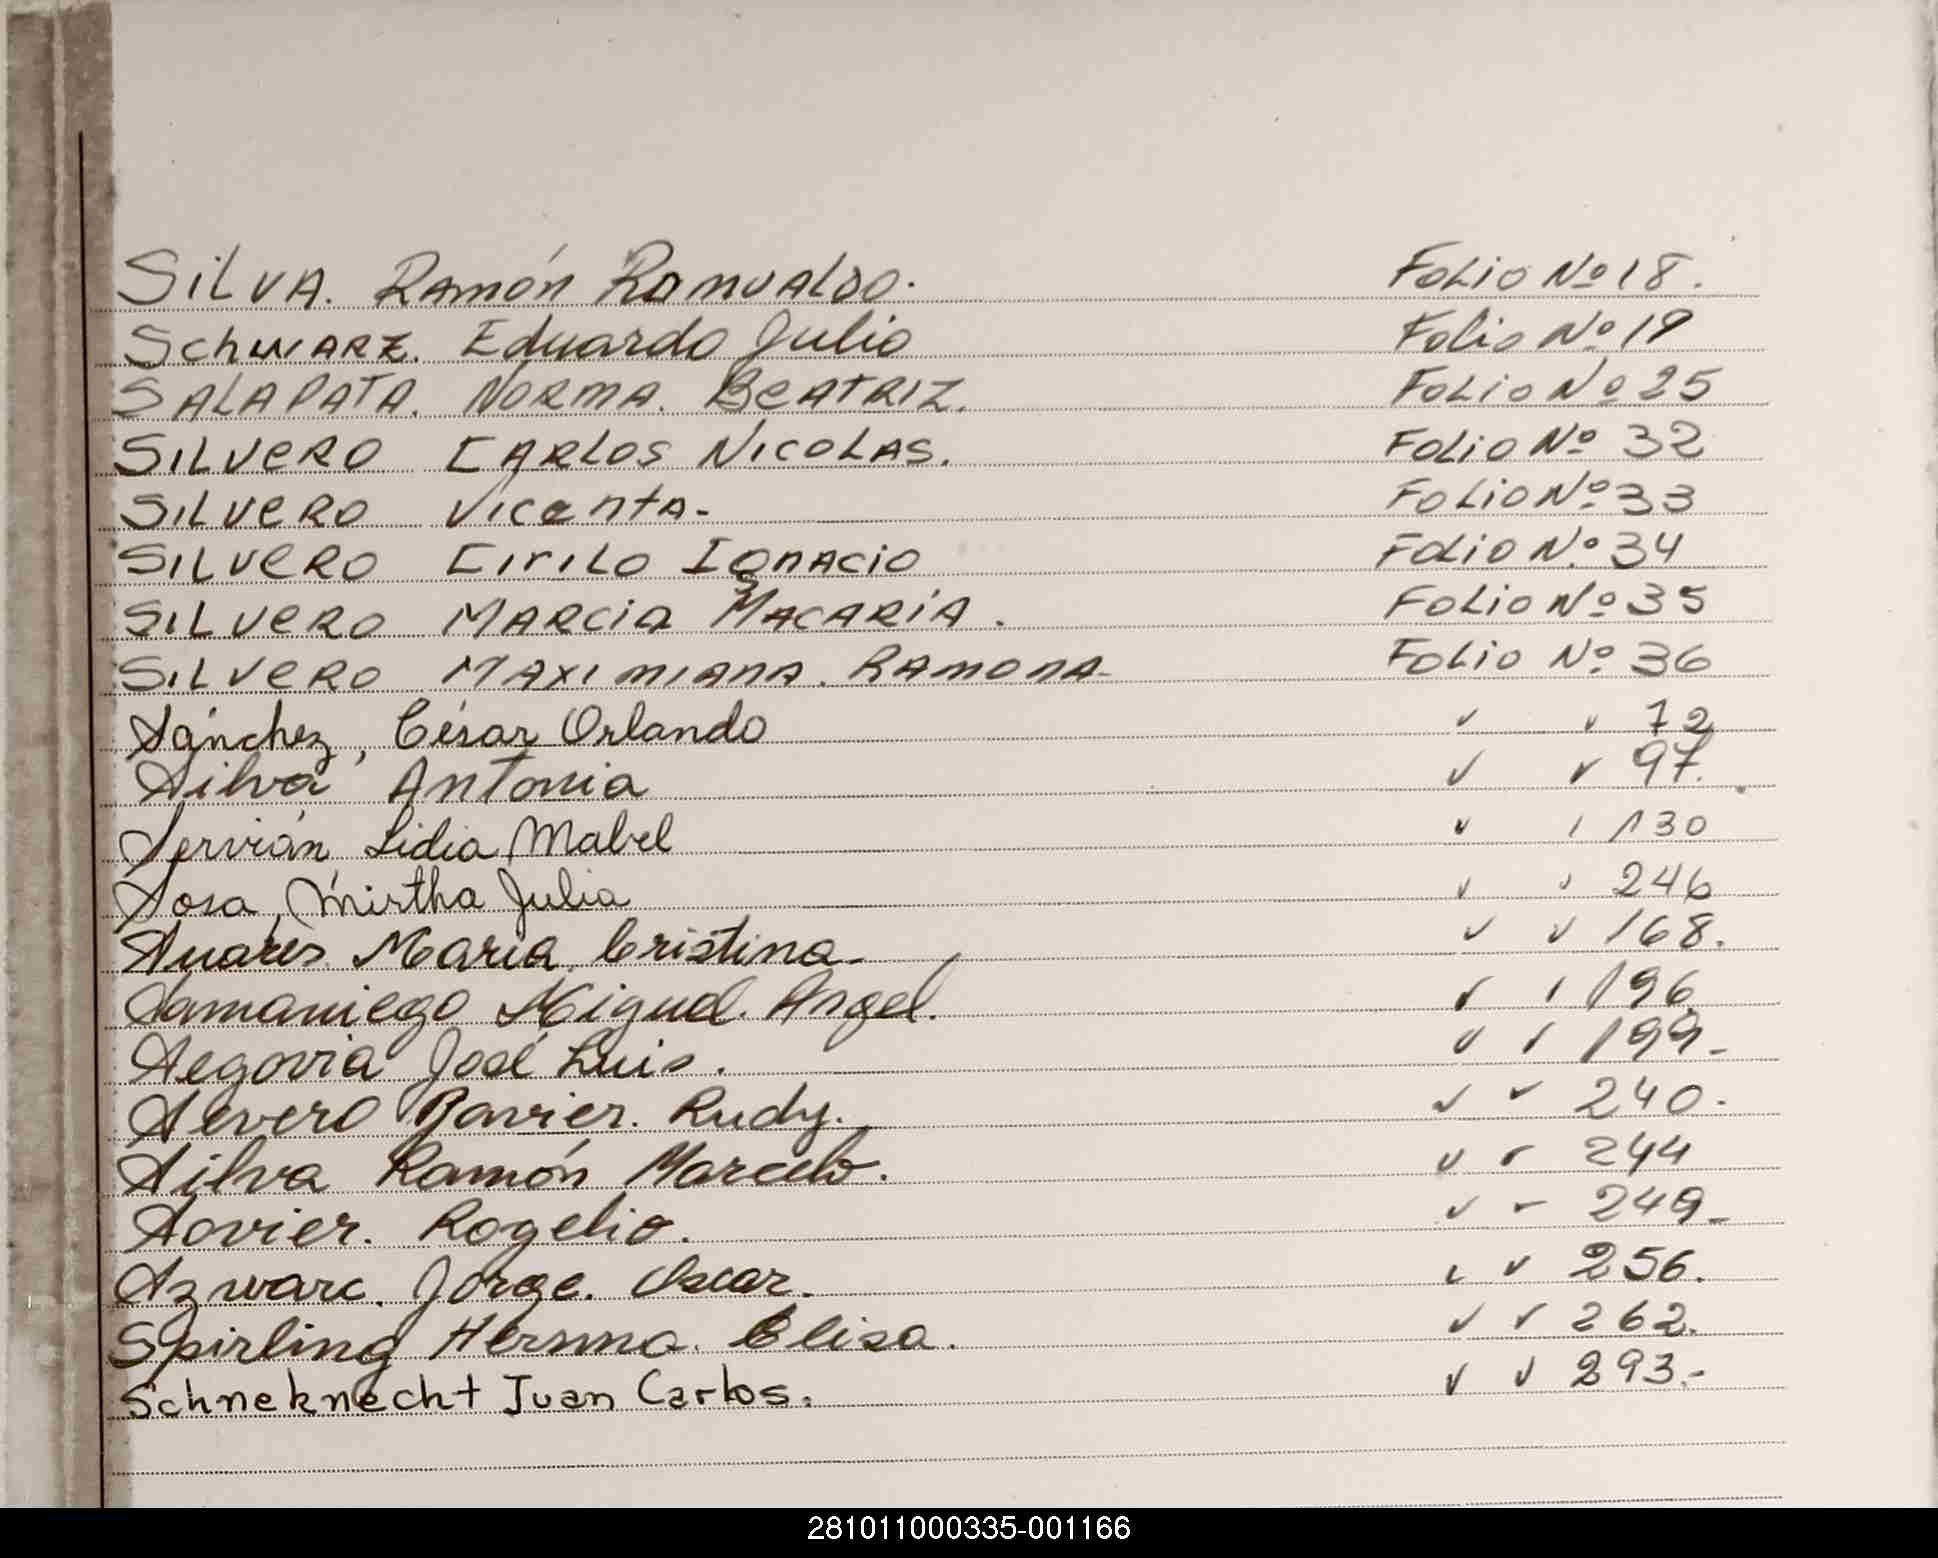 SILVA. RAMÓN ROMUALDO. FOLIO Nº 18.
SCHWARZ. Eduardo Julio Folio Nº 19
SALAPATA. NORMA. BEATRIZ. FOLIO Nº 25
SILVERO CARLOS NICOLAS. FOLIO Nº 32
SILVERO VICENTA- FOLIO Nº 33
SILVERO CIRILO IGNACIO FOLIO Nº 34
SILVERO MARCIA MACARIA. FOLIO Nº 35
SILVERO MAXIMIANA. RAMONA- FOLIO Nº 36
Sánchez, César Orlando " " 72
Silva Antonia " " 97.
Servián Lidia Mabel " " 130
Sosa, Mirtha Julia " " 246
Suares María Cristina- " " 168.
Samaniego Miguel. Angel. " " 196
Segovia José Luis. " " 199-
Severo Javier. Rudy. " " 240-
Silva Ramón Marcelo. " " 244
Sovier. Rogelio. " " 249-
Szwarc. Jorge. Oscar. " " 256.
Spirling Herma. Elisa. " " 262.
Schneknecht Juan Carlos. " " 293.-
281011000335-001166